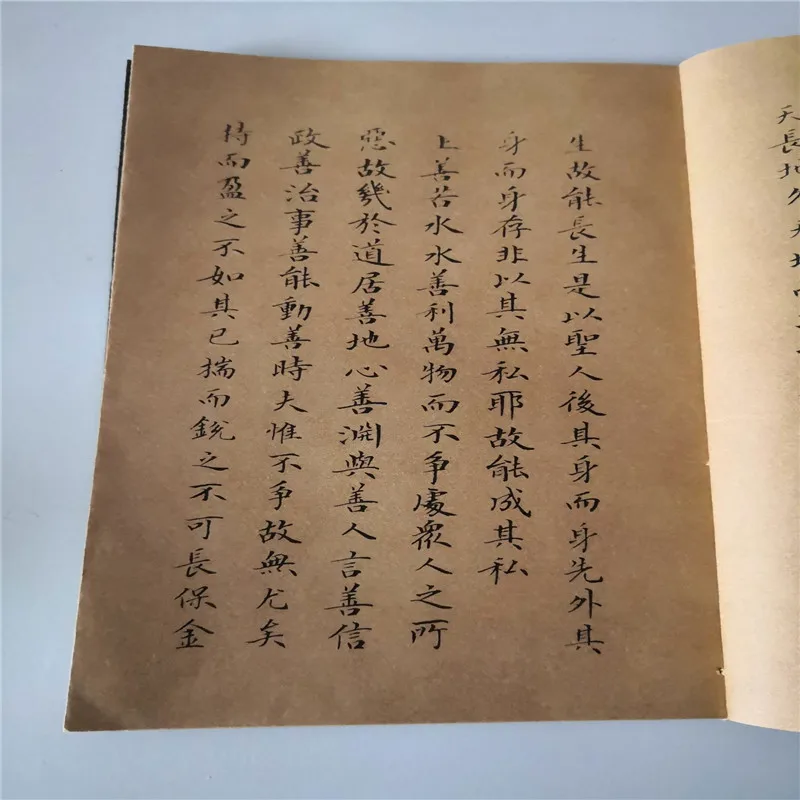 天長地久天地
生故能長生是以聖人後其身而身先外其
身而身存非以其無私耶故能成其私
上善若水水善利萬物而不争處衆人之所
惡故幾於道居善地心善淵與善人言善信
政善治事善能動善時夫惟不争故無尤矣
持而盈之不如其已揣而銳之不可長保金